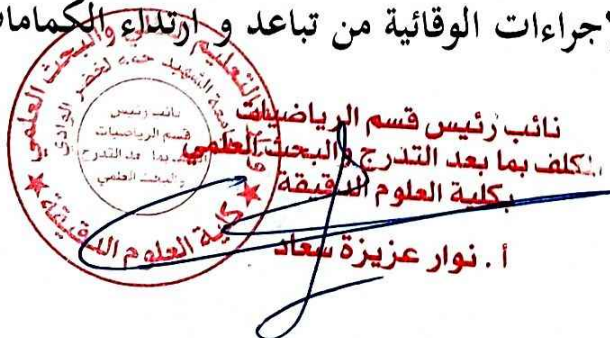 لاجراءات الوقائية من تباعد و ارتداء الكمامات
نائب رئيس قسم الرياضيات
المكلف بما بعد التدرج والبحث العلمي
بكلية العلوم الدقيقة
أ. نوار عزيزة سعاد
التعليم العالي والبحث العلمي
جامعة الشهيد حمه لخضر الوادي
كلية العلوم الدقيقة
نائب رئيس
قسم الرياضيات
المكلف بما بعد التدرج
والبحث العلمي